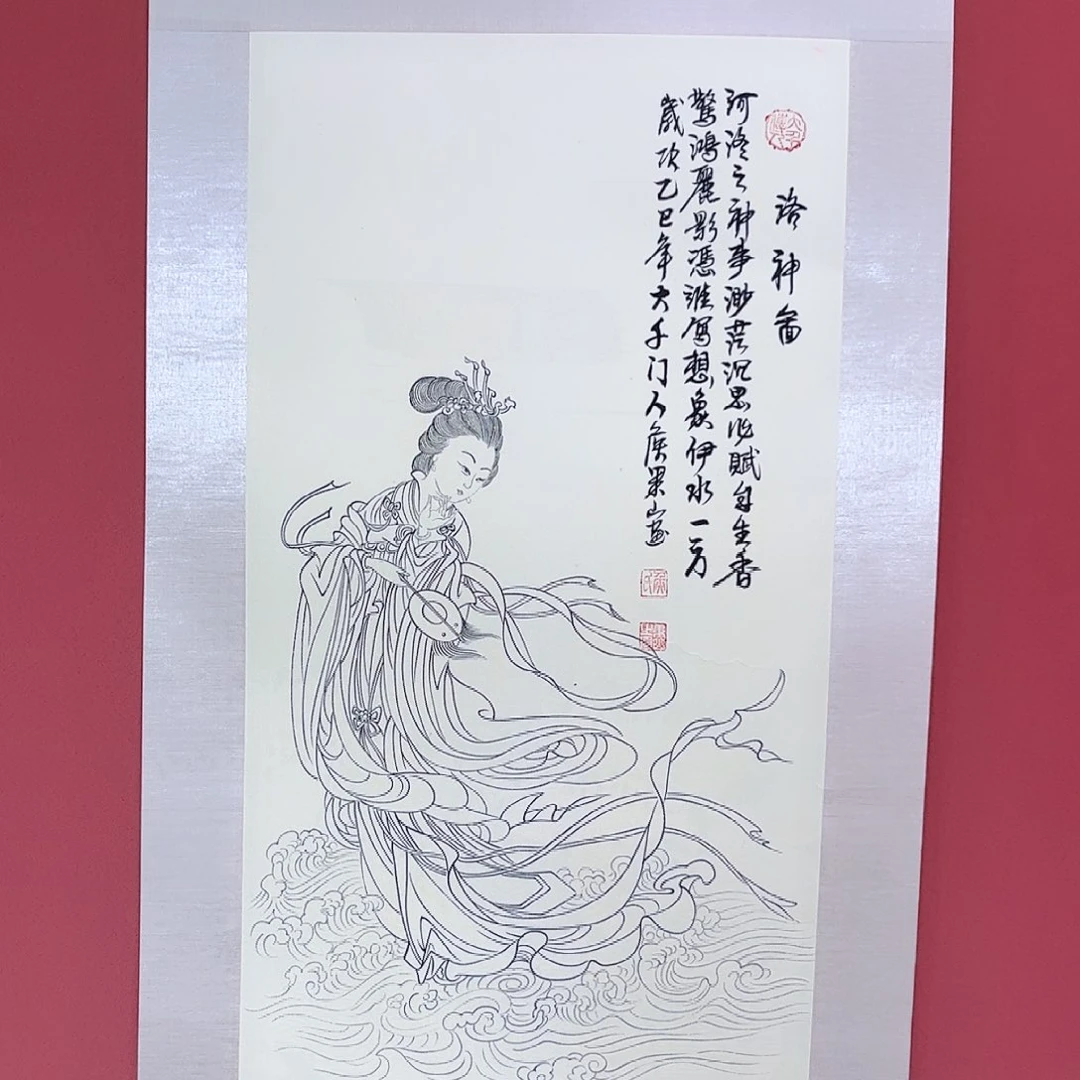 洛神畵
河洛之神事渺茫沉思作賦自生香
驚鴻麗影憑誰寫想象伊水一方
歲次乙巳年大千门人侯果山畫